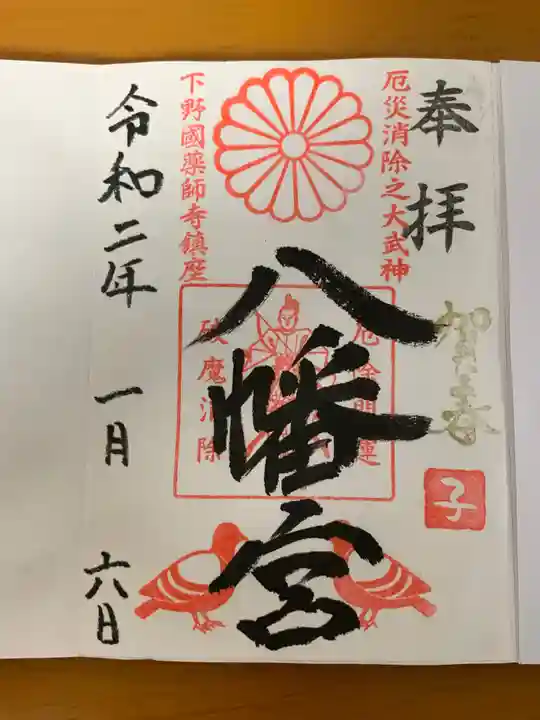 奉拝
賀春
子
厄災消除之大武神
八幡宮
厄除開運
破魔消除
下野國薬師寺鎮座
令和二年
一月
六日